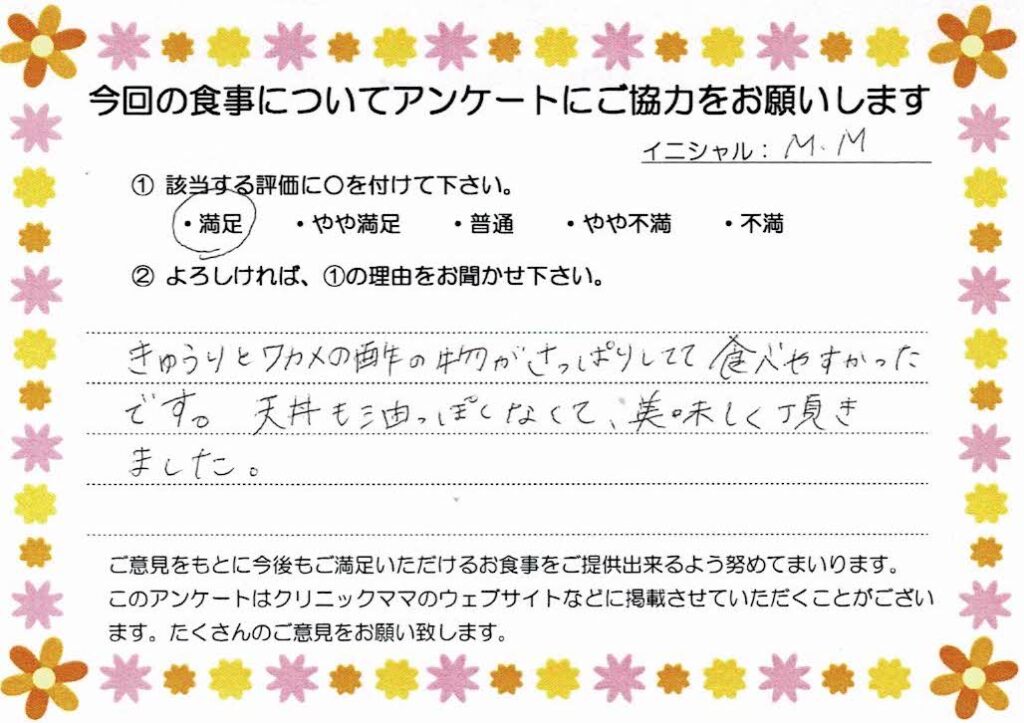 今回の食事についてアンケートにご協力をお願いします
イニシャル： M.M
① 該当する評価に〇を付けて下さい。
・満足 ・やや満足 ・普通 ・やや不満 ・不満
② よろしければ、①の理由をお聞かせ下さい。
きゅうりとワカメの酢の物がさっぱりしてて食べやすかった
です。天丼も油っぽくなくて、美味しく頂き
ました。
ご意見をもとに今後もご満足いただけるお食事をご提供出来るよう努めてまいります。
このアンケートはクリニックママのウェブサイトなどに掲載させていただくことがござい
ます。たくさんのご意見をお願い致します。